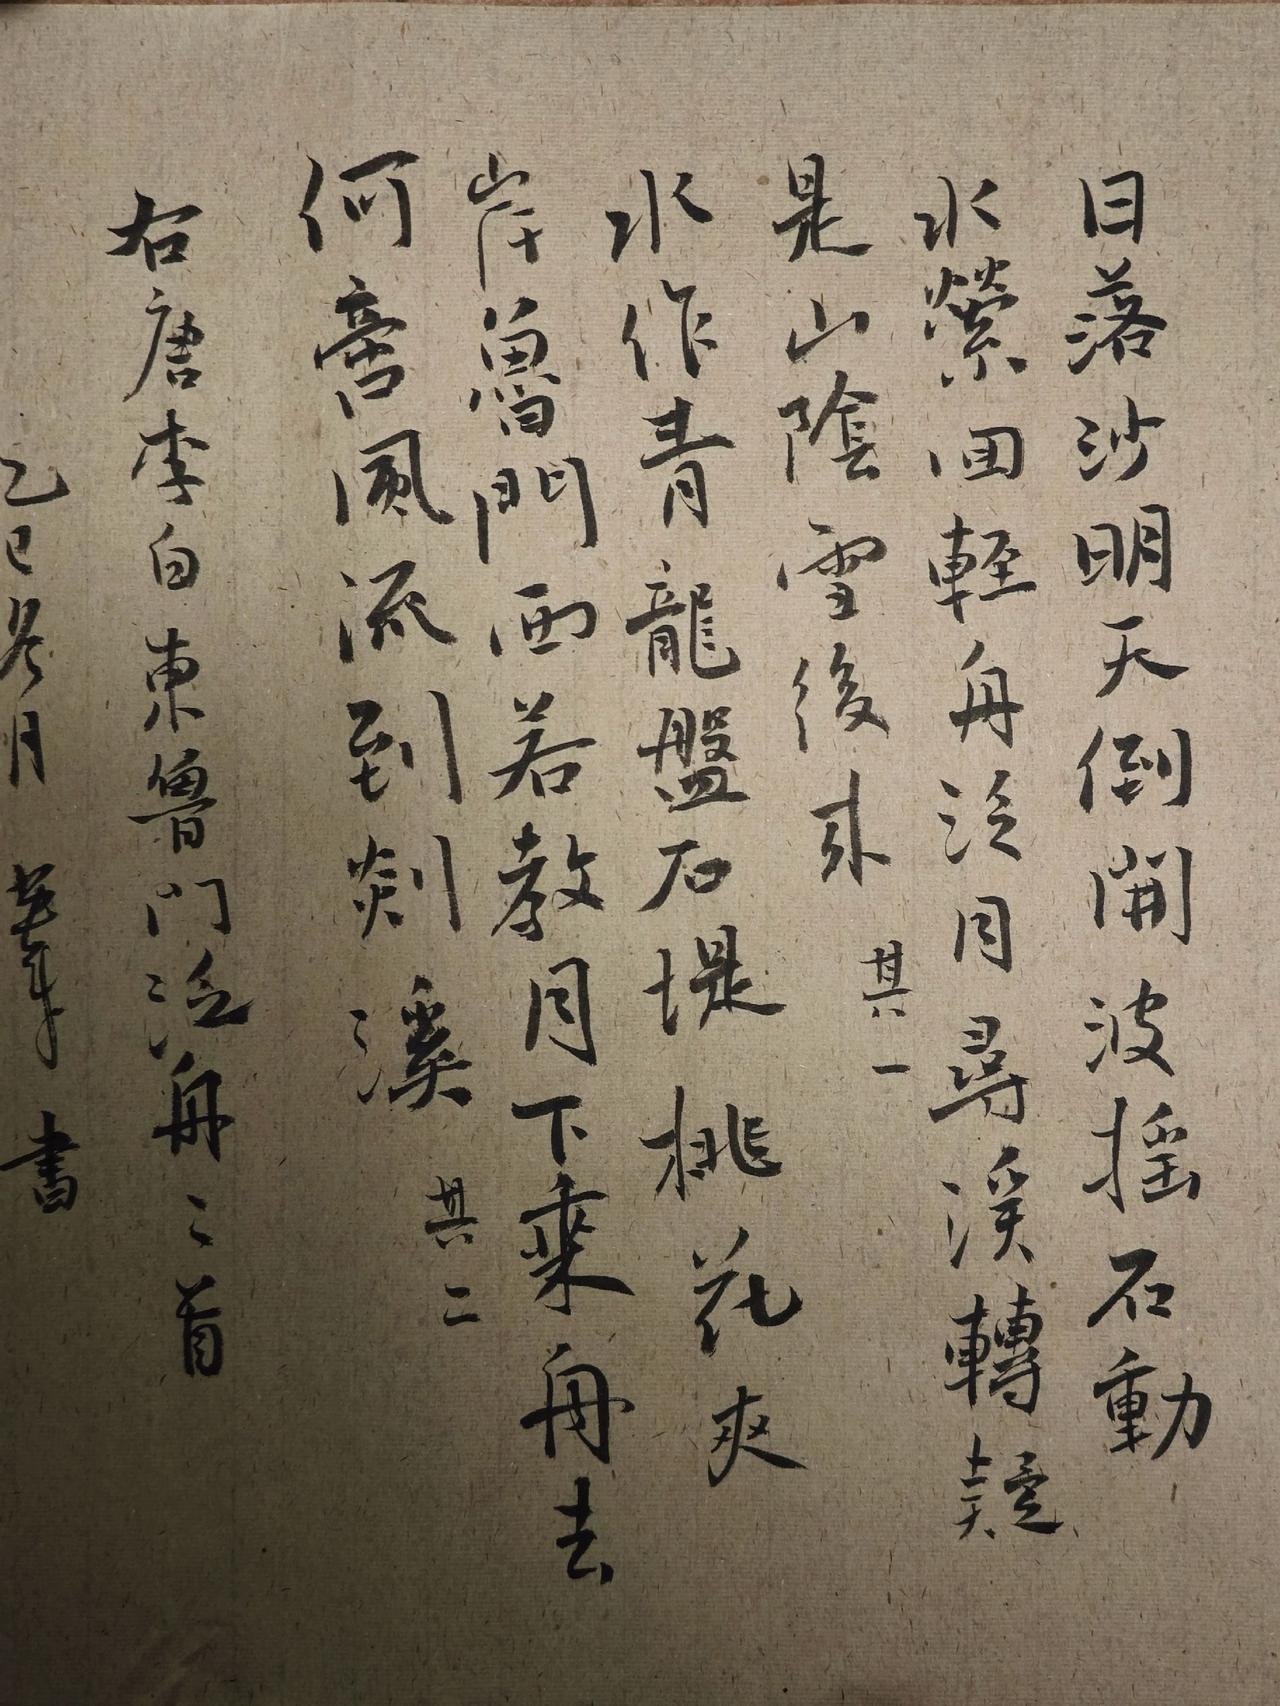 日落沙明天倒開波摇石動
水縈回輕舟泛月尋溪轉疑
是山陰雪後来
其一
水作青龍盤石堤桃花夾
岸魯門西若教月下乘舟去
何啻風流到剡溪
其二
右唐李白東魯門泛舟二首
乙巳冬月 書